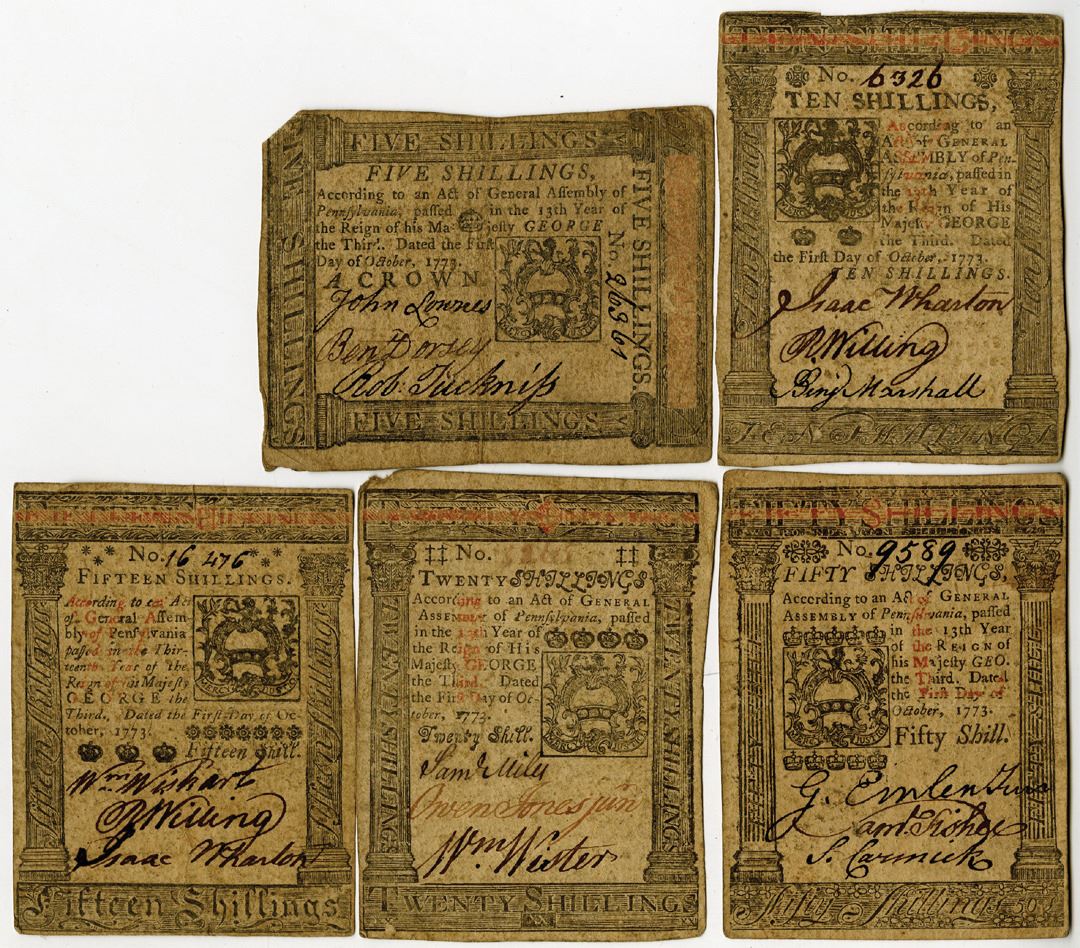 FIVE SHILLINGS
FIVE SHILLINGS,
According to an Act of General Assembly of
Pennsylvania, passed in the 13th Year of
the Reign of his Majesty GEORGE
the Third. Dated the First
Day of October, 1773.
A CROWN
John Lownes
Ben Dorsey
Rob Tuckniss
FIVE SHILLINGS
FIVE SHILLINGS
FIVE SHILLINGS.
No. 26361
TEN SHILLINGS
No. 6326
TEN SHILLINGS,
According to an
Act of GENERAL
ASSEMBLY of Pen-
sylvania, passed in
the 13th Year of
the Reign of His
Majesty GEORGE
the Third. Dated
the First Day of October, 1773.
TEN SHILLINGS.
Isaac Wharton
R Willing
Benj Marshall
Ten Shillings
Ten Shillings
TEN SHILLINGS
No. 16476
FIFTEEN SHILLINGS.
According to an Act
of General Assem
bly of Pensylvania
passed in the Thir-
teenth Year of the
Reign of his Majesty
GEORGE the
Third. Dated the First Day of Oc-
tober, 1773.
Fifteen Shill.
Wm Wishart
R Willing
Isaac Wharton
Fifteen Shillings
Fifteen Shillings
Fifteen Shillings
No.
TWENTY SHILLINGS
According to an Act of GENERAL
ASSEMBLY of Pennsylvania, passed
in the 13th Year of
the Reign of His
Majesty GEORGE
the Third. Dated
the First Day of Oc-
tober, 1773.
Twenty Shill.
MERCY JUSTICE
Saml Miles
Owen Jones jun
Wm Wister
TWENTY SHILLINGS
TWENTY SHILLINGS
TWENTY SHILLINGS
XX
FIFTY SHILLINGS
No. 9589
FIFTY SHILLINGS,
According to an Act of GENERAL
ASSEMBLY of Pennsylvania, passed
in the 13th Year
of the REIGN of
his Majesty GEO.
the Third. Dated
the First Day of
October, 1773.
Fifty Shill.
G. Emlen Jun
Saml Fisher
S. Carmick
Fifty Shillings 50s